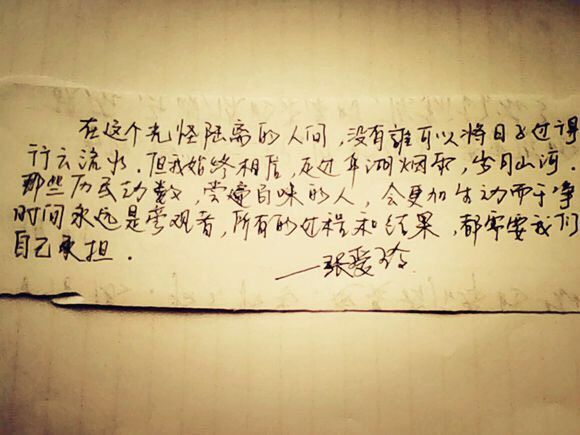 在这个光怪陆离的人间，没有誰可以将日子过得
行云流水．但我始终相信，走过平湖烟雨，岁月山河．
那些历尽劫数，尝遍百味的人，会更加生动而干净
时间永远是旁观者，所有的过程和结果，都需要我们
自己承担．
—张爱玲